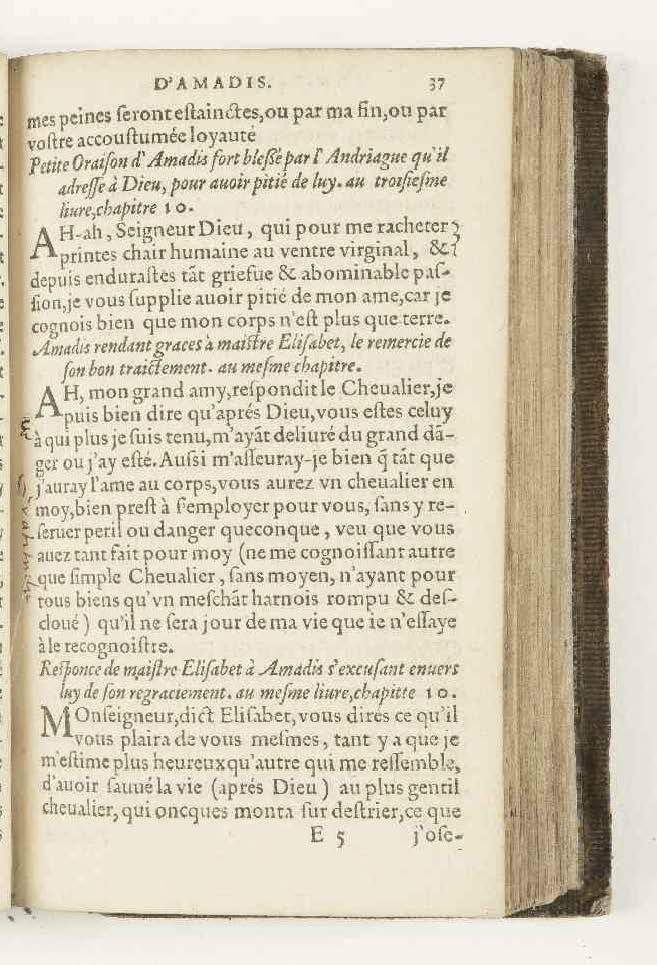 D'AMADIS. 37
mes peines ſeront eſtainctes, ou par ma fin, ou par
voſtre accouſtumée loyauté
Petite Oraiſon d'Amadis fort bleſſé par l'Andriague qu'il
adreſſe à Dieu, pour auoir pitié de luy. au troiſieſme
liure, chapitre 10.
AH-ah, Seigneur Dieu, qui pour me racheter
printes chair humaine au ventre virginal, &
depuis enduraſtes tãt griefue & abominable paſ-
ſion, je vous ſupplie auoir pitié de mon ame, car je
cognois bien que mon corps n'eſt plus que terre.
Amadis rendant graces à maiſtre Eliſabet, le remercie de
ſon bon traictement. au meſme chapitre.
AH, mon grand amy, reſpondit le Cheualier, je
puis bien dire qu'aprés Dieu, vous eſtes celuy
à qui plus je ſuis tenu, m'ayãt deliuré du grand dã-
ger ou j'ay eſté. Auſſi m'aſſeuray-je bien q̃ tãt que
j'auray l'ame au corps, vous aurez vn cheualier en
moy, bien preſt à ſ'employer pour vous, ſans y re-
ſeruer peril ou danger queconque, veu que vous
auez tant fait pour moy (ne me cognoiſſant autre
que ſimple Cheualier, ſans moyen, n'ayant pour
tous biens qu'vn meſchãt harnois rompu & deſ-
cloué) qu'il ne ſera jour de ma vie que ie n'eſſaye
à le recognoiſtre.
Reſponce de maiſtre Eliſabet à Amadis s'excuſant enuers
luy de ſon regraciement. au meſme liure, chapitte 10.
MOnſeigneur, dict Eliſabet, vous dires ce qu'il
vous plaira de vous meſmes, tant y a que je
m'eſtime plus heureux qu'autre qui me reſſemble,
d'auoir ſauué la vie (aprés Dieu) au plus gentil
cheualier, qui oncques monta ſur deſtrier, ce que
E 5 j'oſe-